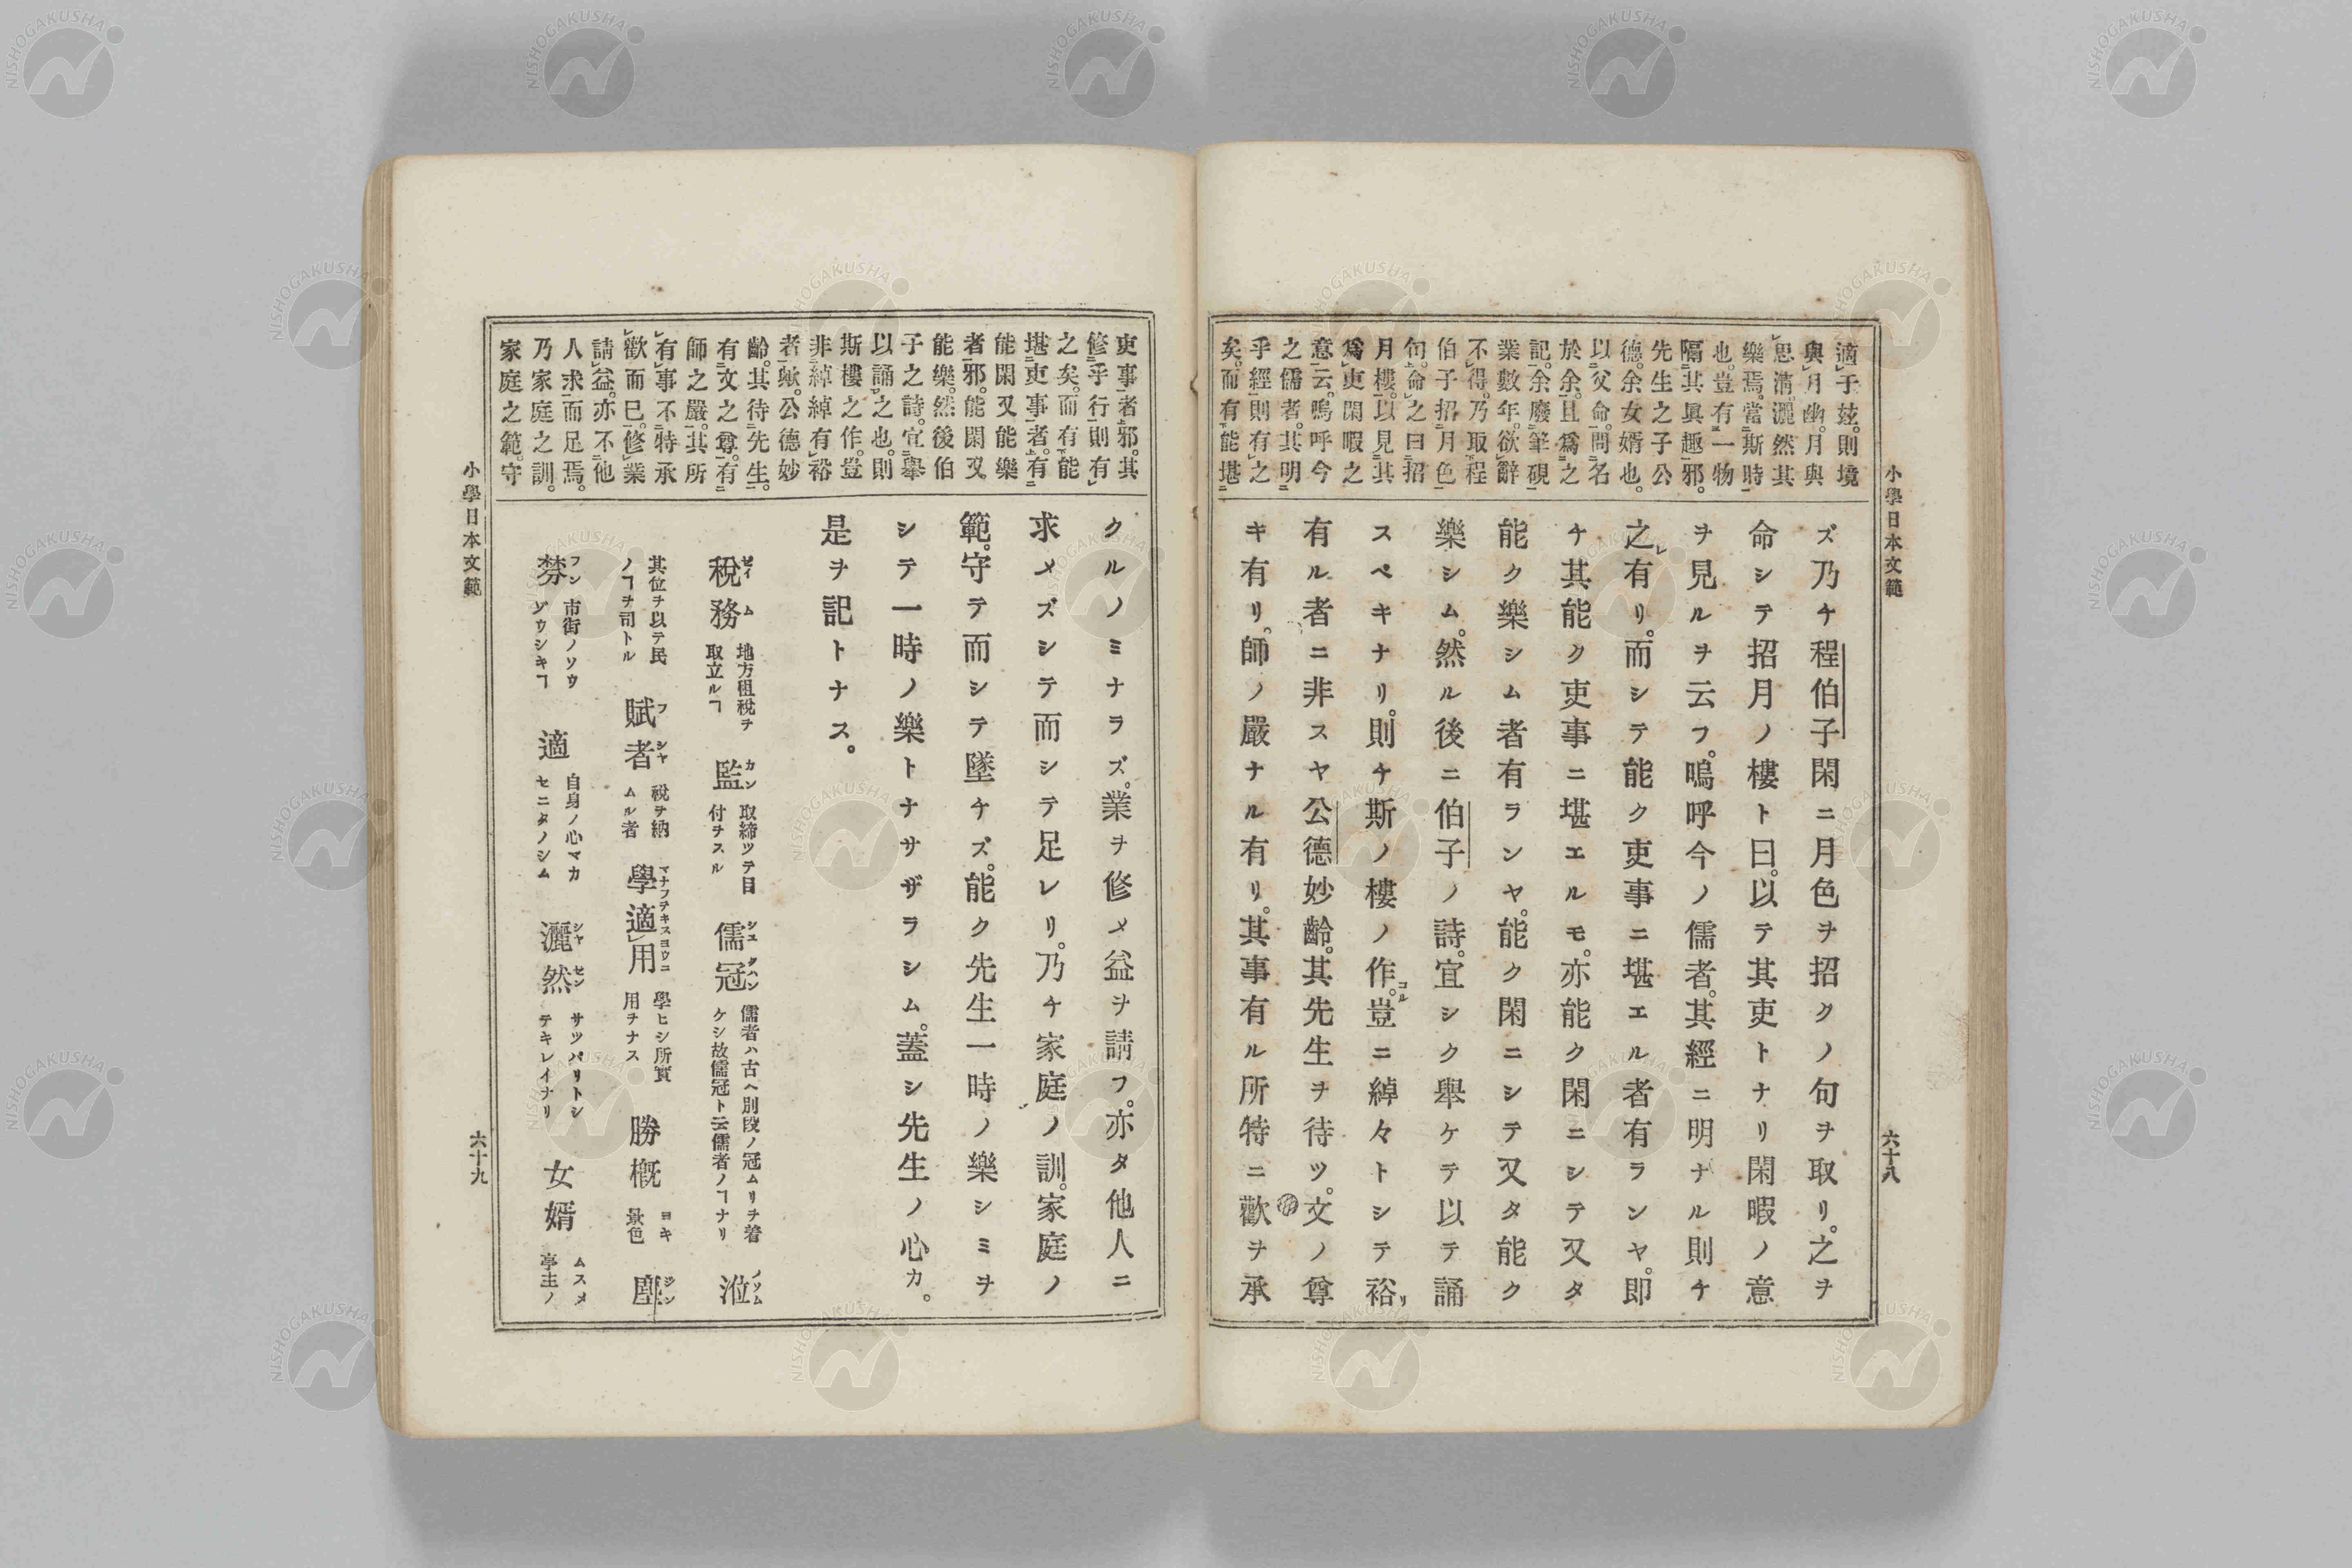 小學日本文範
六十八
適于玆。則境
與月幽。月與
思淸。灑然其
樂焉。當斯時
也。豈有一物
隔其眞趣邪。
先生之子公
德。余女婿也。
以父命。問名
於余。且爲之
記。余廢筆硯
業數年。欲辭
不得。乃取程
伯子招月色
句。命之曰招
月樓。以見其
爲吏閑暇之
意云。嗚呼今
之儒者。其明
乎經則有之
矣。而有能堪
ズ乃チ程伯子閑ニ月色ヲ招クノ句ヲ取リ。之ヲ
命シテ招月ノ樓ト曰。以テ其吏トナリ閑暇ノ意
ヲ見ルヲ云フ。嗚呼今ノ儒者。其經ニ明ナル則チ
之レ有リ。而シテ能ク吏事ニ堪エル者有ランヤ。即
チ其能ク吏事ニ堪エルモ。亦能ク閑ニシテ又タ
能ク樂シム者有ランヤ。能ク閑ニシテ又タ能ク
樂シム。然ル後ニ伯子ノ詩。宜シク舉ケテ以テ誦
スペキナリ。則チ斯ノ樓ノ作コル。豈ニ綽々トシテ裕リ
有ル者ニ非スヤ公德妙齡。其先生ヲ待ツ。文ノ尊
キ有リ。師ノ嚴ナル有リ。其事有ル所特ニ歡ヲ承
吏事者邪。其
修乎行則有
之矣。而有能
堪吏事者。有
能閑又能樂
者邪。能閑又
能樂。然後伯
子之詩。宜舉
以誦之也。則
斯樓之作。豈
非綽綽有裕
者歟。公德妙
齡。其待先生。
有文之尊。有
師之嚴。其所
有事不特承
歡而已。修業
請益。亦不他
人求而足焉。
乃家庭之訓。
家庭之範。守
クルノミナラズ。業ヲ修メ益ヲ請フ。亦タ他人ニ
求メズシテ而シテ足レリ。乃チ家庭ノ訓。家庭ノ
範。守テ而シテ墜ケズ。能ク先生一時ノ樂シミヲ
シテ一時ノ樂トナサザラシム。蓋シ先生ノ心カ。
是ヲ記トナス。
稅務 ゼイム 地方租稅ヲ取立ルヿ 監 カン 取締ツテ目付ヲスル 儒冠 ジユクハン 儒者ハ古ヘ別段ノ冠ムリヲ着ケシ故儒冠ト云儒者ノヿナリ 涖 ノゾム
其位ヲ以テ民ノヿヲ司トル 賦者 フシヤ 稅ヲ納ムル者 學適用 マナフテキスヨウニ 學ヒシ所實用ヲナス 勝概 ヨキ景色 塵 ジン
棼 フン 市街ノソウゾウシキヿ 適 自身ノ心マカセニタノシム 灑然 シヤゼン サツパリトシテキレイナリ 女婿 ムスメ亭主ノ
小學日本文範
六十九